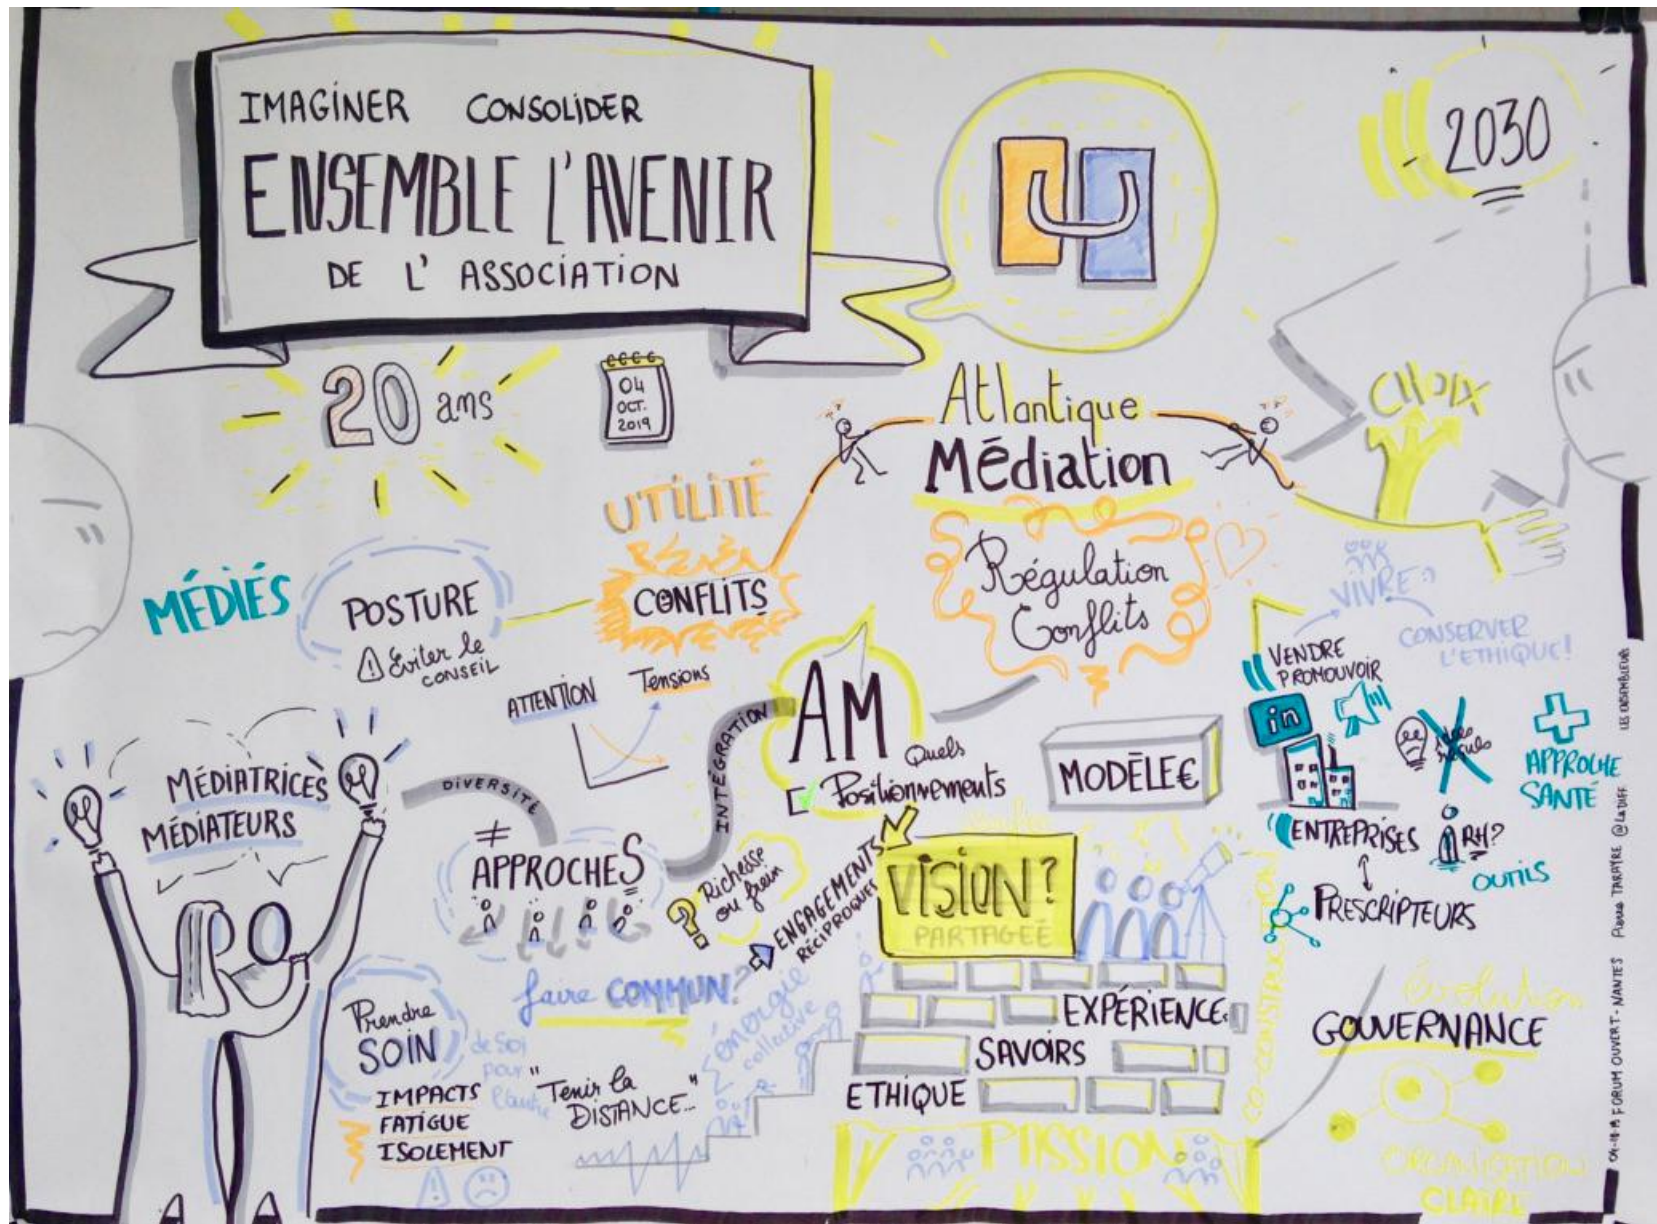 IMAGINER CONSOLIDER
ENSEMBLE L'AVENIR
DE L'ASSOCIATION
2030
20 ans
04
OCT.
2019
Atlantique
Médiation
CHOIX
UTILITÉ
CONFLITS
Régulation
Conflits
MÉDIÉS
POSTURE
⚠ Éviter le
CONSEIL
ATTENTION
Tensions
VIVRE
CONSERVER
L'ETHIQUE!
VENDRE
PROMOUVOIR
in
AM
Quels
Positionnements
INTÉGRATION
DIVERSITÉ
MODÈL€
APPROCHE
SANTÉ
ENTREPRISES
RH?
OUTILS
PRESCRIPTEURS
MÉDIATRICES
MÉDIATEURS
≠
APPROCHES
? Richesse
ou frein
ENGAGEMENTS
RÉCIPROQUES
VISION?
PARTAGEÉ
faire COMMUN?
énergie
collective
Prendre
SOIN
de soi
pour
l'autre
IMPACTS
FATIGUE
ISOLEMENT
"Tenir la
DISTANCE..."
EXPÉRIENCE
SAVOIRS
ETHIQUE
PASSION
CO-CONSTRUCTION
évolution
GOUVERNANCE
ORGANISATION
CLAIRE
FORUM OUVERT - NANTES Pierre TARAYRE @LaDIFF LES ENSEMBLEURS